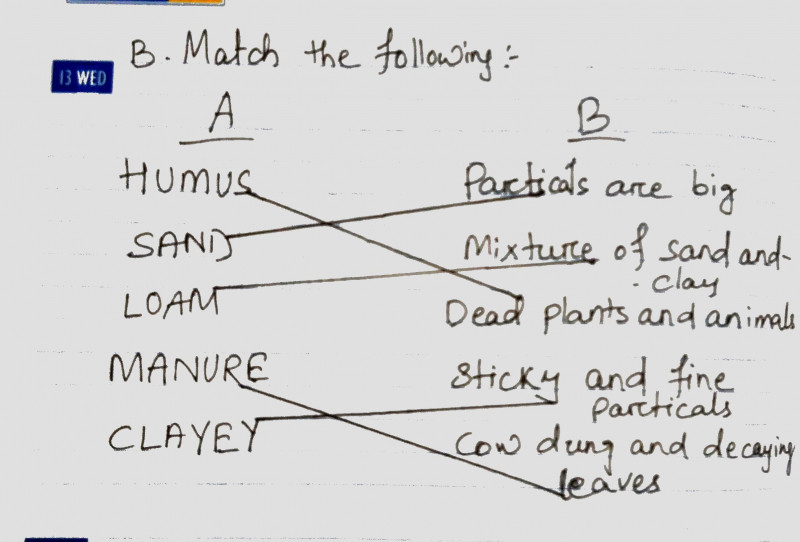 B. Match the following :-
13 WED
A B
HUMUS Particals are big
SAND Mixture of sand and-
- clay
LOAM Dead plants and animals
MANURE Sticky and fine
particals
CLAYEY Cow dung and decaying
leaves